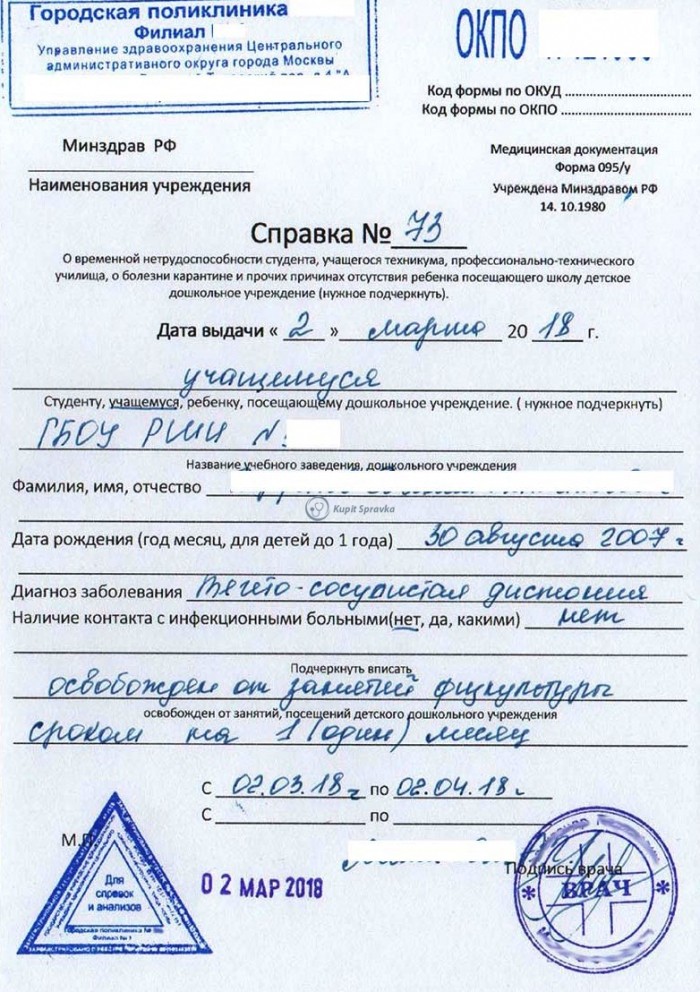 Городская поликлиника
Филиал
Управление здравоохранения Центрального
административного округа города Москвы
ОКПО
Код формы по ОКУД
Код формы по ОКПО
Минздрав РФ
Наименования учреждения
Медицинская документация
Форма 095/у
Учреждена Минздравом РФ
14. 10.1980
Справка № 73
О временной нетрудоспособности студента, учащегося техникума, профессионально-технического
училища, о болезни карантине и прочих причинах отсутствия ребенка посещающего школу детское
дошкольное учреждение (нужное подчеркнуть).
Дата выдачи « 2 » марта 20 18 г.
учащемуся
Студенту, учащемуся, ребенку, посещающему дошкольное учреждение. ( нужное подчеркнуть)
ГБОУ РШИ №
Название учебного заведения, дошкольного учреждения
Фамилия, имя, отчество
Kupit Spravka
Дата рождения (год месяц, для детей до 1 года) 30 августа 2007 г
Диагноз заболевания Вегето-сосудистая дистония
Наличие контакта с инфекционными больными(нет, да, какими) нет
Подчеркнуть вписать
освобожден от занятий физкультуры
освобожден от занятий, посещений детского дошкольного учреждения
сроком на 1 (один) месяц
С 02.03.18 г по 02.04.18 г.
С по
М.П.
Для
справок
и анализов
Городская поликлиника №
Филиал № 1
02 МАР 2018
Подпись врача
ВРАЧ